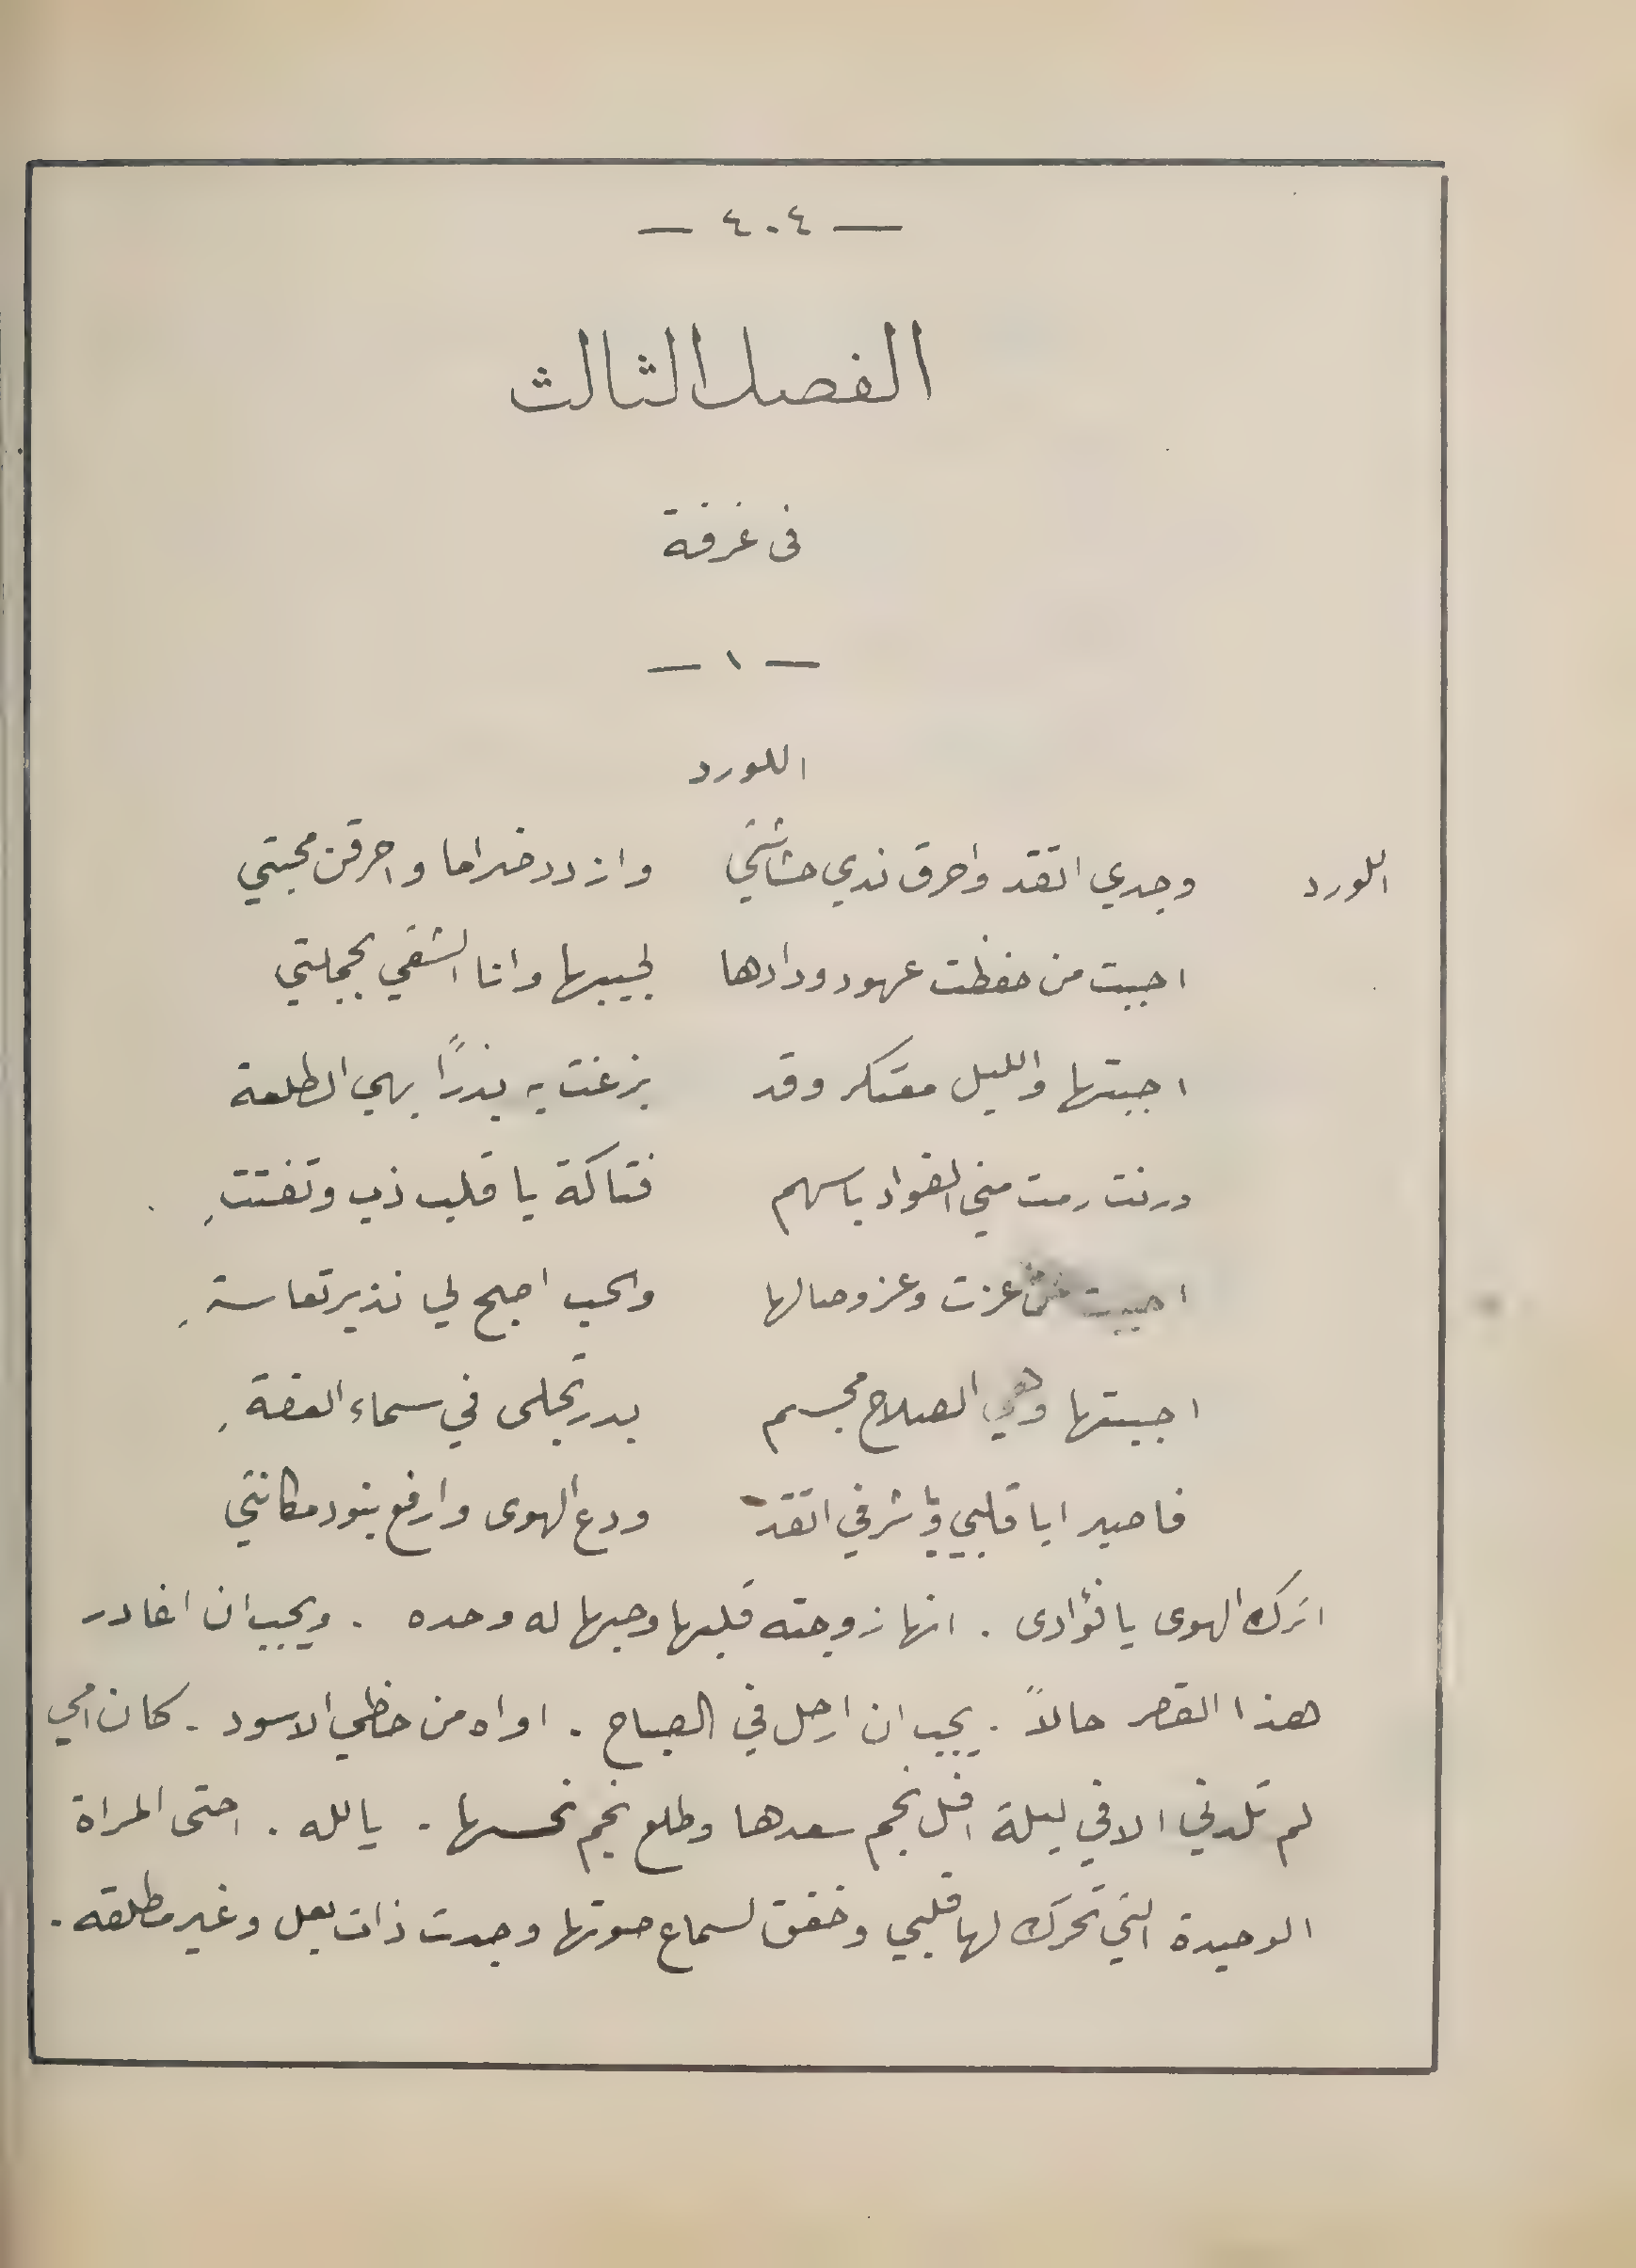 — ٤٠٤ —
الفصل الثالث
في غرفة
— ١ —
اللورد
اللورد وجدي اتقد واحرق ندي حشاشتي وازدد ضراما واحرقن محبتي
احببت من حفظت عهود ودادها لحبيبها وانا الشقي بجملتي
احببتها والليل معتكر وقد بزغت به بدرًا بهي الطلعة
ورنت رمت مني الفواد باسهم فتاكة يا قلب ذب وتفتتِ
احببت من عزت وعز وصالها والحب اصبح لي نذير تعاسةِ
احببتها وهي الصلاح مجسم بدر تجلى في سماء العفةِ
فاصبر ايا قلبي ويا شرفي اتقد ودع الهوى وارفع بنود مكانتي
اترك الهوى يا فؤادى . انها زوجته قلبها وحبها له وحده . ويجب ان اغادر
هذا القصر حالاً . يجب ان ارحل في الصباح . اواه من حظي الاسود . كان امي
لم تلدني الا في ليلة افل نجم سعدها وطلع نجم نحسها . يالله . احتى المراة
الوحيدة التي تحرك لها قلبي وخفق لسماع صوتها وجدت ذات بعل وغير مطلقه .